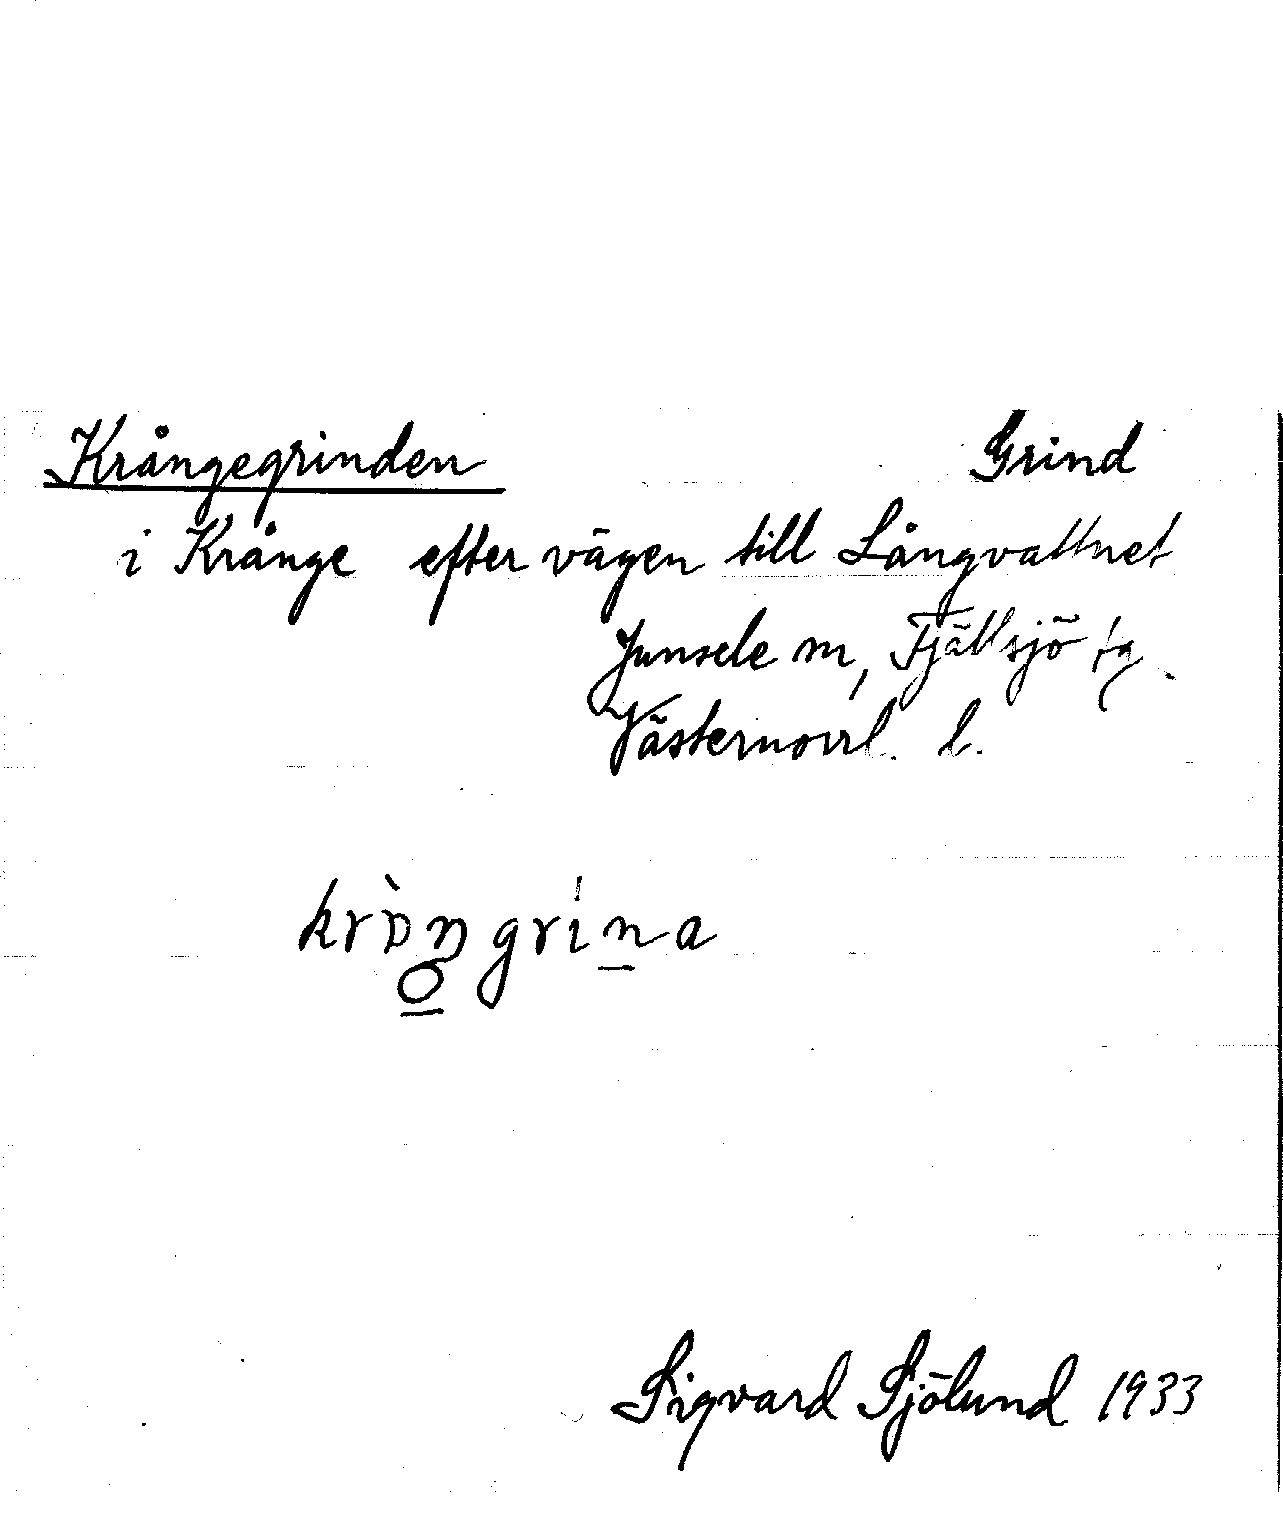 Krångegrinden Grind
i Krånge efter vägen till Långvattnet
Junsele sn, Fjällsjö tg.
Västernorrl. l.
kròŋgrina
Sigvard Sjölund 1933